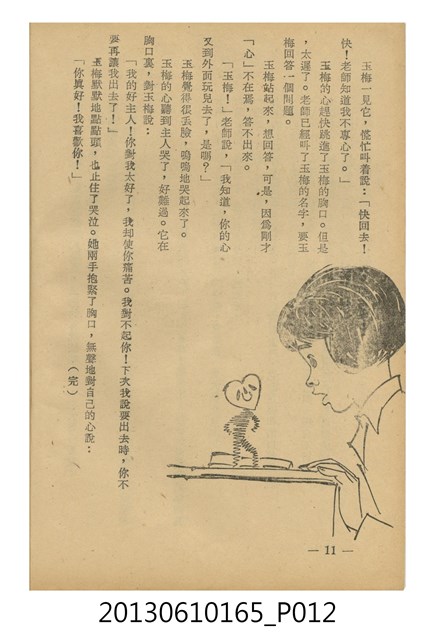 玉梅一見它，慌忙叫着說：「快回去！
快！老師知道我不專心了。」
玉梅的心趕快跳進了玉梅的胸口。但是
，太遲了。老師已經叫了玉梅的名字，要玉
梅回答一個問題。
玉梅站起來，想回答，可是，因爲剛才
「心」不在焉，答不出來。
「玉梅！」老師說，「我知道，你的心
又到外面玩兒去了，是嗎？」
玉梅覺得很丟臉，嗚嗚地哭起來了。
玉梅的心聽到主人哭了，好難過。它在
胸口裏，對玉梅說：
「我的好主人！你對我太好了，我却使你痛苦。我對不起你！下次我說要出去時，你不
要再讓我出去了！」
玉梅默默地點點頭，也止住了哭泣。她兩手抱緊了胸口，無聲地對自己的心說：
「你眞好！我喜歡你！」
（完）
— 11 —
20130610165_P012